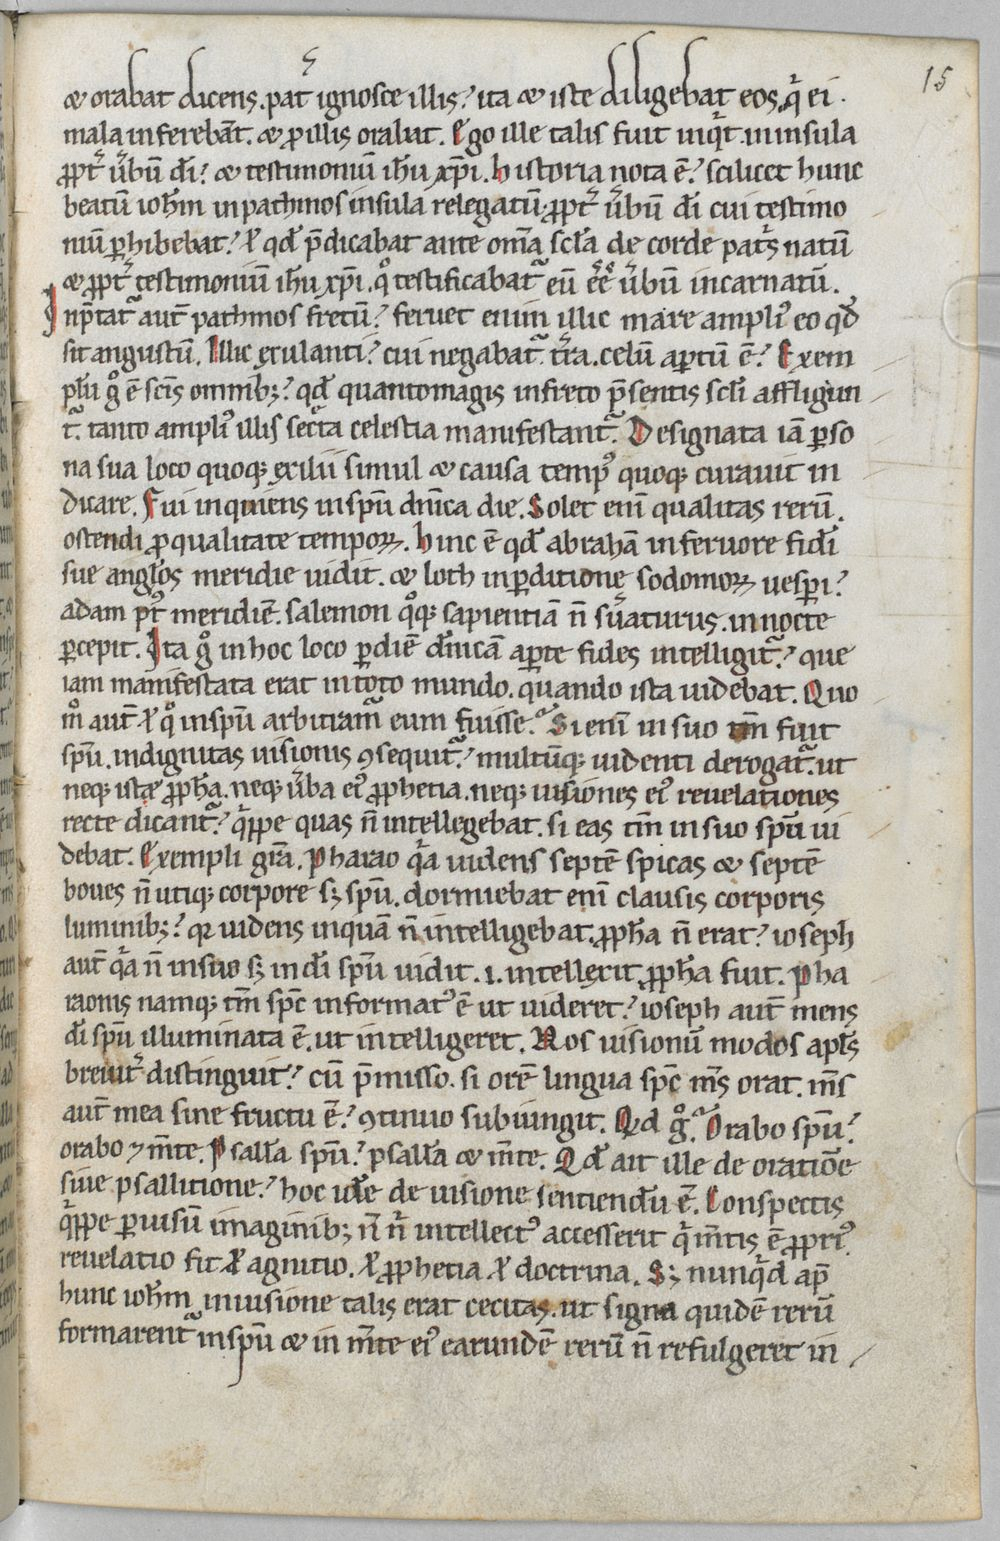 15
& orabat dicens. pat̃ ignosce illis? ita & iste diligebat eos, qͥ ei.
mala inferebãt. & p illis orabat. Ego ille talis fuit inq̇t. in insula
ꝓpt̾ ůbũ dı̃? & testimoniũ ihũ xp̃i. historia nota ẽ? scilicet hunc
beatũ ioh̃m in pathmos insula relegatũ ꝓpt̾ ůbũ dı̃ cui testimo
niũ ꝑhibebat? ł qd̃ p̃dicabat ante om̃a scl̃a de corde pat̾s natũ
& ꝓpt̾ testimoniũ ihũ xp̃i. qͦ testificabat᷑ eũ ẽẽ ůbũ incarnatũ.
Inp̃tat᷑ aut̃ pathmos fretũ? feruet enim illic mare ampliꝰ eo qd̃
sit angustũ. Illic exulanti? cui negabat᷑ t̃ra. celũ aꝑtũ ẽ? Exem
plũ gͦ ẽ scı̃s omnib;? qd̃ quanto magis in freto p̃sentis scl̃i affligun
t᷑. tanto ampliꝰ illis sec̃ta celestia manifestant᷑. Designata iã ꝑso
na sua loco quoq; exilii simul & causa tempꝰ quoq; curauit in
dicare. Fui inquiens in spũ dñica die. Solet enı̃ qualitas rerũ.
ostendi ꝓ qualitate tempoꝝ. hinc ẽ qd̃ abrahã in feruore fidei
sue angl̃os meridie uidit. & loth in ꝑditione sodomoꝝ uesꝑi?
adam pꝰt meridiẽ. salemon qͦq; sapientiã ñ s̃uaturus. in nocte
ꝑcepit. Ita gͦ in hoc loco ꝑ diẽ dñicã aꝑte fides intelligit᷑? que
iam manifestata erat in toto mundo. quando ista uidebat. Quo
mͦ aut̃ ł qͦ in spũ arbitram᷑ eum fuisse? Si enı̃ in suo tm̃ fuit
spũ. indignitas uisionis ꝯsequit᷑? multũq; uidenti derogat᷑. ut
neq; istæ ꝓph̃a. neq; ůba eiꝰ ꝓphetia. neq; uisiones eiꝰ reuelationes
recte dicant᷑? qͥppe quas ñ intellegebat. si eas tm̃ in suo spũ ui
debat. Exempli gr̃a. Pharao qͣa uidens septẽ spicas & septẽ
boues ñ utiq; corpore s; spũ. dormiebat enı̃ clausis corporis
luminib;? qꝛ uidens inquã ñ intelligebat, ꝓph̃a ñ erat? ioseph
aut̃ qͣa ñ in suo s; in dı̃ spũ uidit. .i. intellexit, ꝓph̃a fuit. Pha
raonis namq; tm̃ spc̃ informatꝰ ẽ ut uideret? ioseph aut̃ mens
dı̃ spũ illuminata ẽ. ut intelligeret. Nos uisionũ modos apl̃s
breuit̾ distinguit? cũ p̃misso. si orẽ lingua spc̃ m̃s orat. m̃s
aut̃ mea sine fructu ẽ? ꝯtinuo subiungit. Qd gͦ? Orabo spũ?
orabo ⁊ m̃te. Psallã spũ? psallã & m̃te. Qd̃ ait ille de oratiõe
siue psallitione? hoc idẽ de uisione sentiendũ ẽ. Conspectis
qͥppe ꝑ uisũ imaginib; ñ nͥ intellectꝰ accesserit qͥ m̃tis ẽ ꝓpriꝰ.
reuelatio fit ł agnitio. ł ꝓphetia ł doctrina. S; nunqͥd ap̃
hunc ioh̃m in uisione talis erat cecitas. ut signa quidẽ rerũ
formarent᷑ in spũ & in m̃te eiꝰ earundẽ rerũ ñ refulgeret in